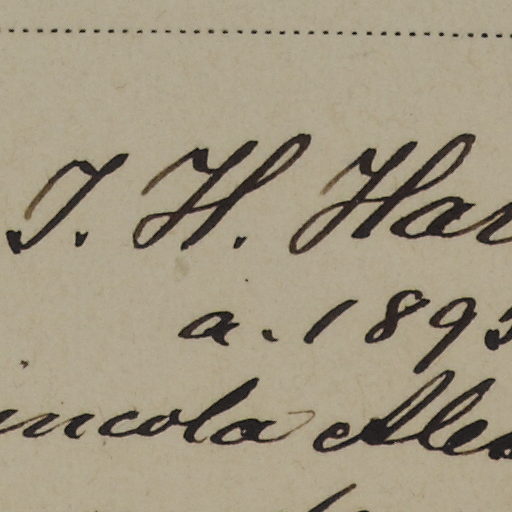 J. H. Har
a. 1895
incola Ales